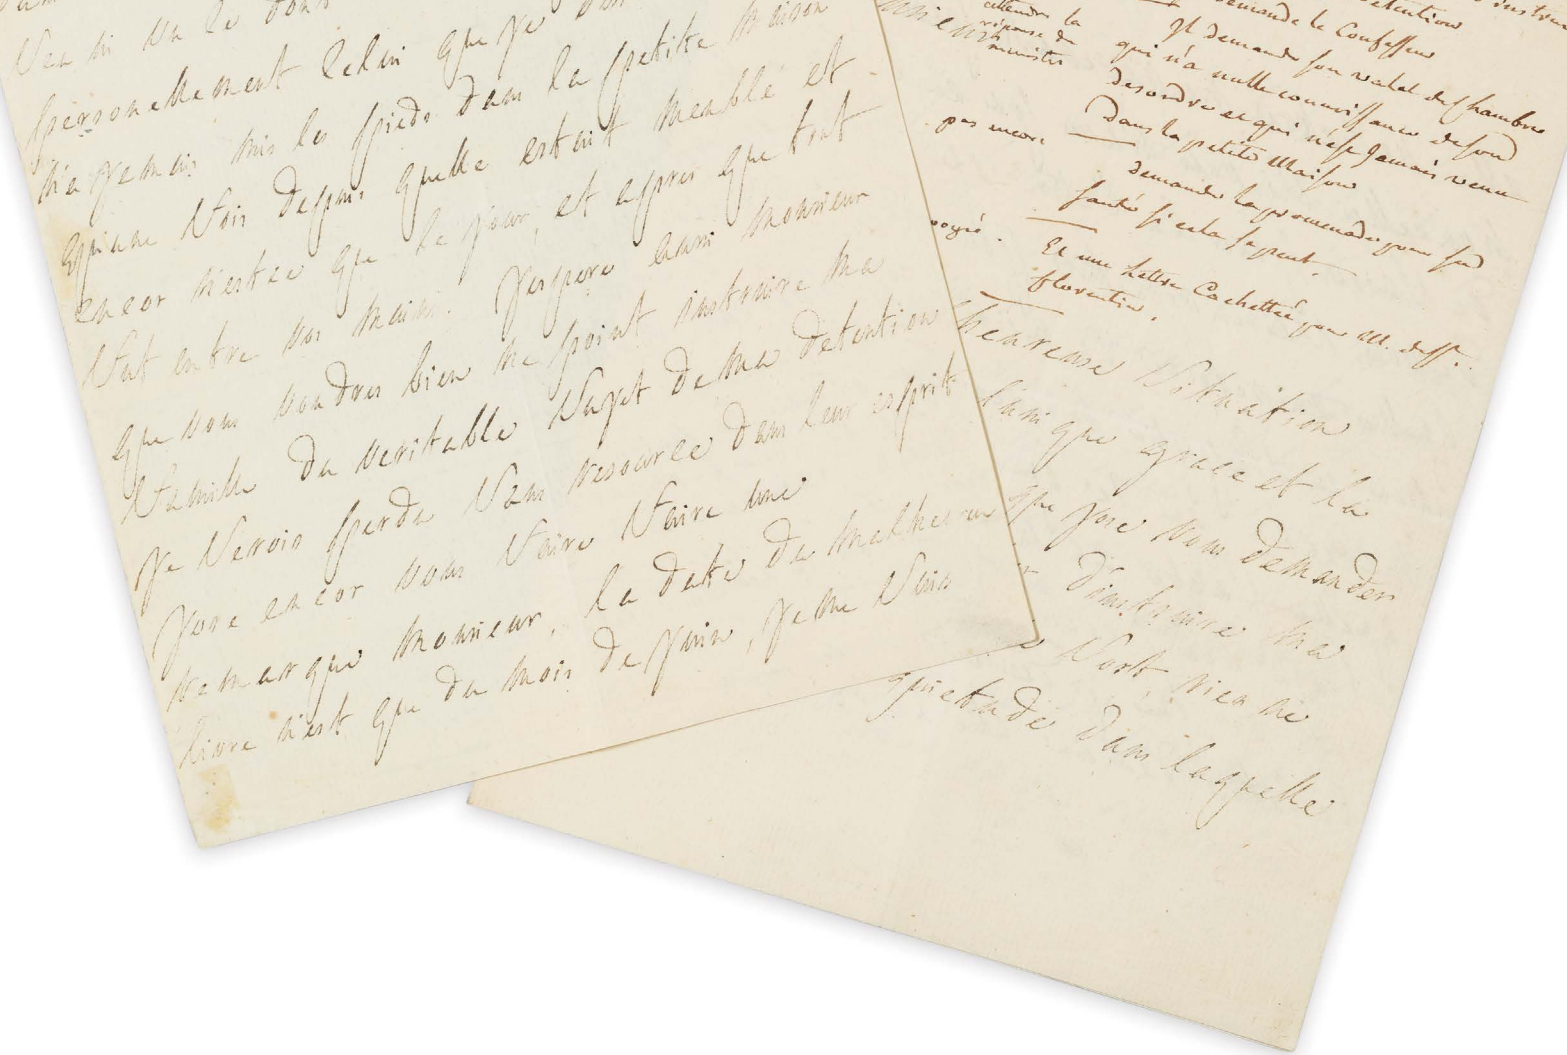 personellement celui que je
n'a jamais mis les pieds dans la petitte maison
depuis quelle estoit meublé et
encor n'estce que le jour, et apres que tout
fut entre vos mains. j'espere aussi monsieur
que vous voudres bien ne point instruire ma
famille du veritable sujet de ma detention
je serois perdu sans resource dans leur esprit
j'ose encor vous faire faire une
remarque monsieur, la date du malheureux
livre n'est que du mois de juin, je me suis
attendre la
réponse du
ministre
demande le Confesseur
Il demande son valet de Chambre
qui n'a nulle connoissance de son
desordre et qui n'est jamais venu
dans la petite Maison
pas encore
demande la promenade pour sa
santé si cela se peut.
Et une lettre Cachettée pour M. de St.
florentin.
heureuse situation
l'unique grace et la
que j'ose vous demander
d'instruire ma
sort, rien ne
quietude dans laquelle